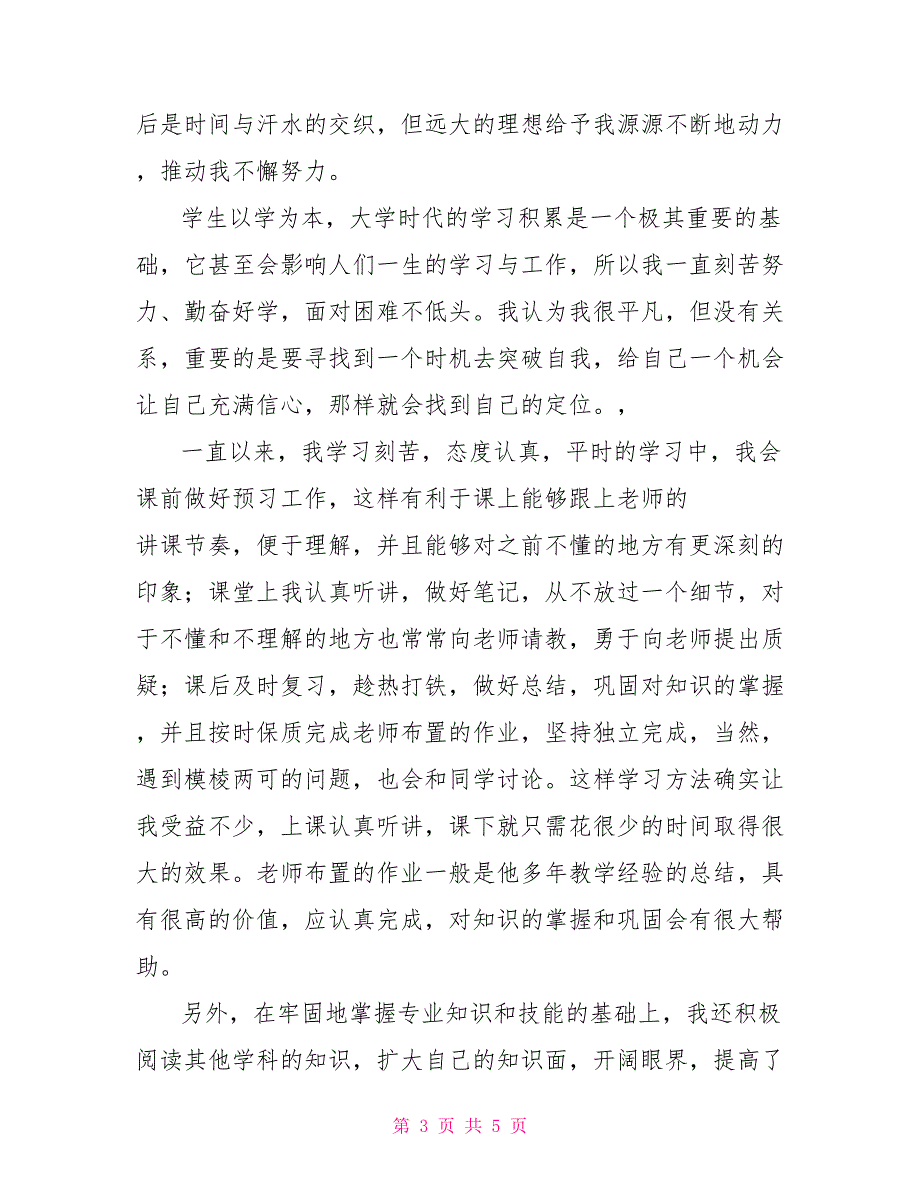 后是时间与汗水的交织，但远大的理想给予我源源不断地动力
，推动我不懈努力。
学生以学为本，大学时代的学习积累是一个极其重要的基
础，它甚至会影响人们一生的学习与工作，所以我一直刻苦努
力、勤奋好学，面对困难不低头。我认为我很平凡，但没有关
系，重要的是要寻找到一个时机去突破自我，给自己一个机会
让自己充满信心，那样就会找到自己的定位。，
一直以来，我学习刻苦，态度认真，平时的学习中，我会
课前做好预习工作，这样有利于课上能够跟上老师的
讲课节奏，便于理解，并且能够对之前不懂的地方有更深刻的
印象；课堂上我认真听讲，做好笔记，从不放过一个细节，对
于不懂和不理解的地方也常常向老师请教，勇于向老师提出质
疑；课后及时复习，趁热打铁，做好总结，巩固对知识的掌握
，并且按时保质完成老师布置的作业，坚持独立完成，当然，
遇到模棱两可的问题，也会和同学讨论。这样学习方法确实让
我受益不少，上课认真听讲，课下就只需花很少的时间取得很
大的效果。老师布置的作业一般是他多年教学经验的总结，具
有很高的价值，应认真完成，对知识的掌握和巩固会有很大帮
助。
另外，在牢固地掌握专业知识和技能的基础上，我还积极
阅读其他学科的知识，扩大自己的知识面，开阔眼界，提高了
第 3 页 共 5 页